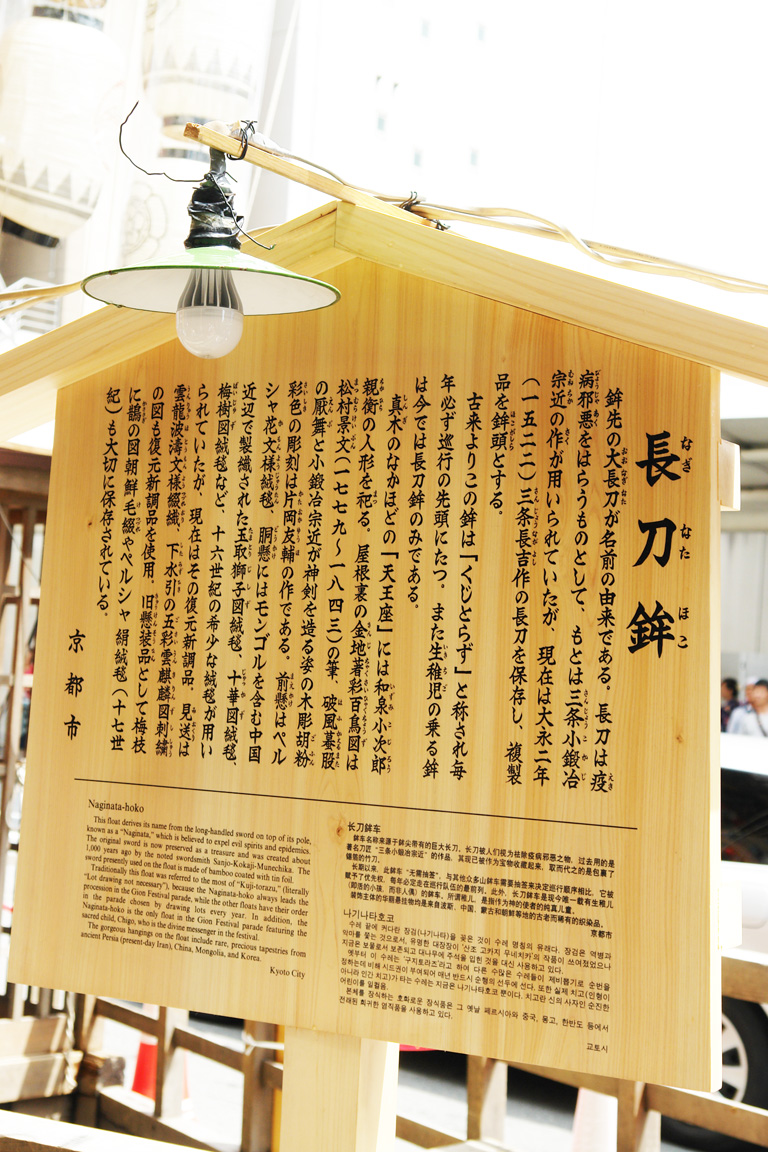 長刀鉾
鉾先の大長刀が名前の由来である。長刀は疫
病邪悪をはらうものとして、もとは三条小鍛冶
宗近の作が用いられていたが、現在は大永二年
（一五二二）三条長吉作の長刀を保存し、複製
品を鉾頭とする。
古来よりこの鉾は「くじとらず」と称され毎
年必ず巡行の先頭にたつ。また生稚児の乗る鉾
は今では長刀鉾のみである。
真木のなかほどの「天王座」には和泉小次郎
親衡の人形を祀る。屋根裏の金地著彩百鳥図は
松村景文（一七七九〜一八四三）の筆、破風蟇股
の厭舞と小鍛冶宗近が神剣を造る姿の木彫胡粉
彩色の彫刻は片岡友輔の作である。前懸はペル
シャ花文様絨毯、胴懸にはモンゴルを含む中国
近辺で製織された玉取獅子図絨毯、十華図絨毯、
梅樹図絨毯など、十六世紀の希少な絨毯が用い
られていたが、現在はその復元新調品。見送は
雲龍波濤文様綴織、下水引の五彩雲麒麟図刺繍
の図も復元新調品を使用。旧懸装品として梅枝
に鵲の図朝鮮毛綴やペルシャ絹絨毯（十七世
紀）も大切に保存されている。
京都市
Naginata-hoko
This float derives its name from the long-handled sword on top of its pole,
known as a "Naginata," which is believed to expel evil spirits and epidemics.
The original sword is now preserved as a treasure and was created about
1,000 years ago by the noted swordsmith Sanjo-Kokaji-Munechika. The
sword presently used on the float is made of bamboo coated with tin foil.
Traditionally this float was referred to the most of "Kuji-torazu," (literally
"Lot drawing not necessary"), because the Naginata-hoko always leads the
procession in the Gion Festival parade, while the other floats have their order
in the parade chosen by drawing lots every year. In addition, the
Naginata-hoko is the only float in the Gion Festival parade featuring the
sacred child, Chigo, who is the divine messenger in the festival.
The gorgeous hangings on the float include rare, precious tapestries from
ancient Persia (present-day Iran), China, Mongolia, and Korea.
Kyoto City
长刀鉾车
鉾车名称来源于鉾尖带有的巨大长刀，长刀被人们视为祛除疫病邪恶之物，过去用的是
著名刀匠"三条小锻冶宗近"的作品，其现已被作为宝物收藏起来，取而代之的是包裹了
锡箔的竹刀。
长期以来，此鉾车"无需抽签"，与其他众多山鉾车需要抽签来决定巡行顺序相比，它被
赋予了优先权，每年必定走在巡行队伍的最前列。此外，长刀鉾车是现今唯一载有生稚儿
(即活的小孩，而非人偶) 的鉾车，所谓稚儿，是指作为神的使者的纯真儿童。
装饰主体的华丽悬挂物均是来自波斯、中国、蒙古和朝鲜等地的古老而稀有的织染品。
京都市
나기나타호코
수레 끝에 커다란 장검(나기나타)을 꽂은 것이 수레 명칭의 유래다. 장검은 역병과
악마를 쫓는 것으로서, 유명한 대장장이 '산조 고카지 무네치카'의 작품이 쓰여졌었으나
지금은 보물로서 보존되고 대나무에 주석을 입힌 것을 대신 사용하고 있다.
옛부터 이 수레는 '구지토라즈'라고 하여 다른 수많은 수레들이 제비뽑기로 순번을
정하는데 비해 시드권이 부여되어 매년 반드시 순행의 선두에 선다. 또한 실제 치고(인형이
아니라 인간 치고)가 타는 수레는 지금은 나기나타호코 뿐이다. 치고란 신의 사자인 순진한
어린이를 일컬음.
본체를 장식하는 호화로운 장식품은 그 옛날 페르시아와 중국, 몽고, 한반도 등에서
전래된 희귀한 염직품을 사용하고 있다.
교토시